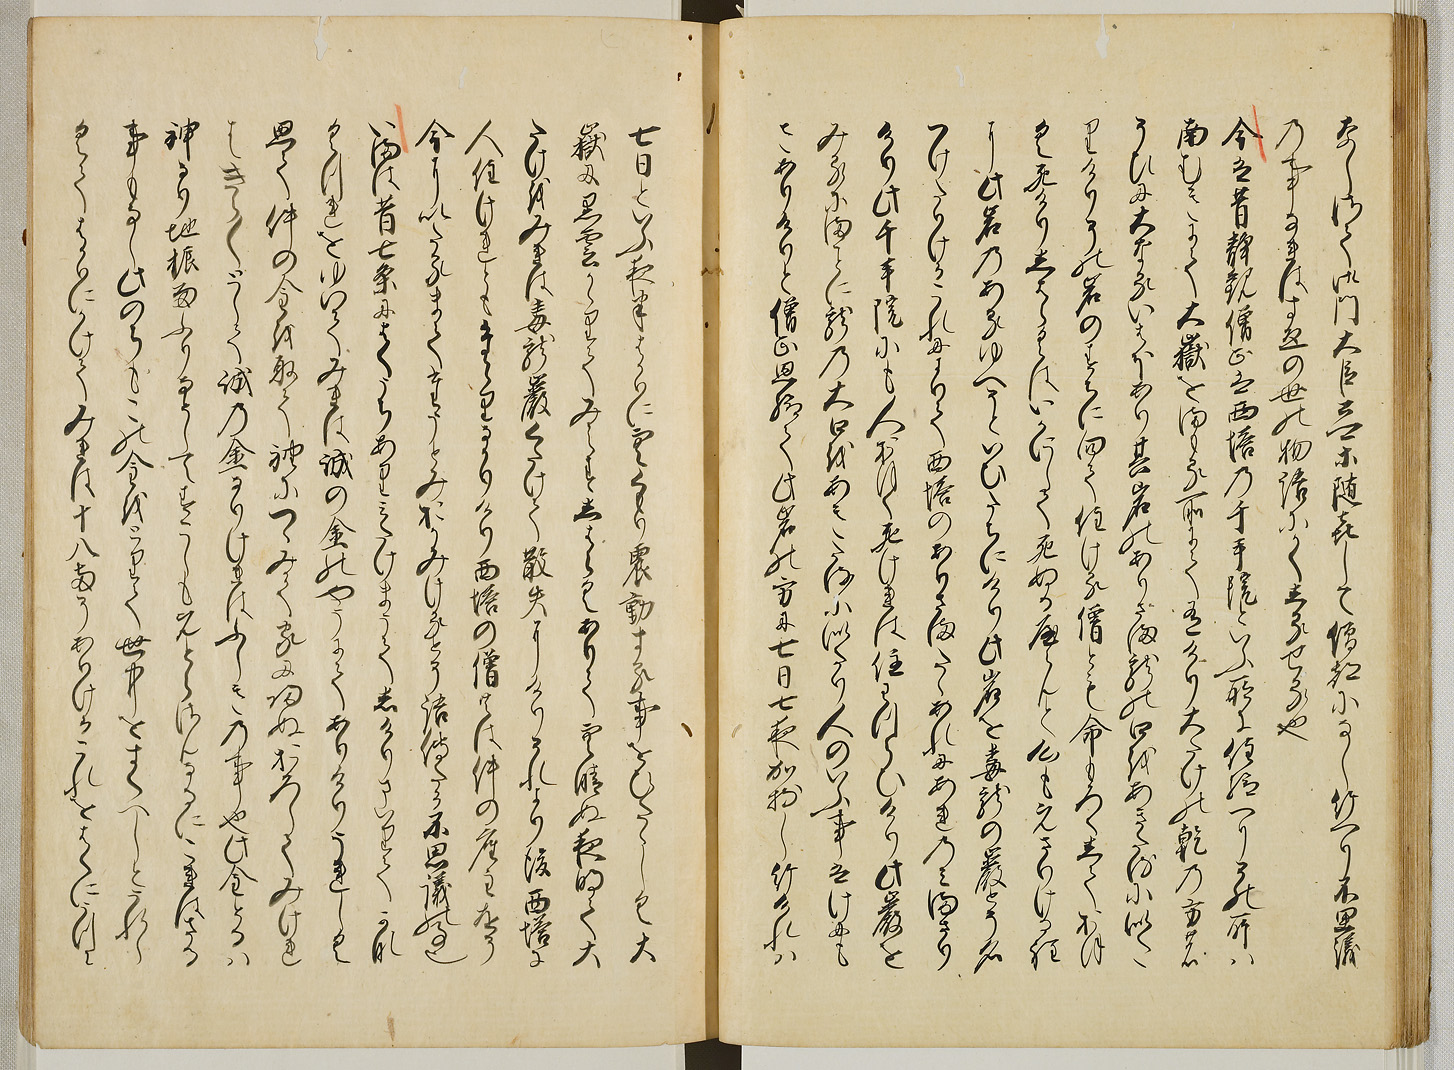 なし偖て御門大臣公卿等随喜して僧都になし給へり不思議
乃事なれはすゑの世の物語にかくしるせる也
今は昔静観僧正は西塔の千手院といふ所に住給へりその所ハ
南むきにて大嶽をまもる所にて有けり大たけの乾の方の
そひに大なるいはほあり其岩のありさま龍の口をあきたるに似た
りけりその岩のすちに向て住ける僧とも命もろくしておほ
く死けりしはらくはいかにして死ぬるやらんと心もえさりける程
に此岩のあるゆへそといひたちにけり此岩を毒龍の巌とそ名
つけたりけるこれによりて西塔のありさまたゝあれにあれのみまさり
けり此千手院にも人おほく死けれは住わつらひけり此巌を
みるにまことに龍の大口をあきたるに似たり人のいふ事はけにも
さありけりと僧正思給て此岩の方に七日七夜加持し給けれハ
七日といふ夜半はかりに空くもり震動する事をひたゝしく大
嶽に黒雲かゝりてみえすしはらくありて空晴ぬ夜明て大
たけをみれは毒龍巌くたけて散失にけりそれより後西塔に
人住けれともたゝりなかりけり西塔の僧ともは件の座主をそ
今にいたるまてたうとみおかみけるとそ語伝たる不思議の事也
いまは昔七条にはくうちありみたけまうてしけりまいりてかな
くつれをゆいてみれは誠の金のやうにてありけりうれしく
思て件の金を取て袖につゝみて家に帰ぬおろしてみけれ
はきら／＼として誠の金なりけれはふしきの事也此金とるハ
神なり地振雨ふりなとしてすこしもえとらさんなるにこれはさる
事もなし此のちもこの金をとりて世中をすくへしとうれし
くてはかりにかけてみれは十八両そありけるこれをはくにうつに